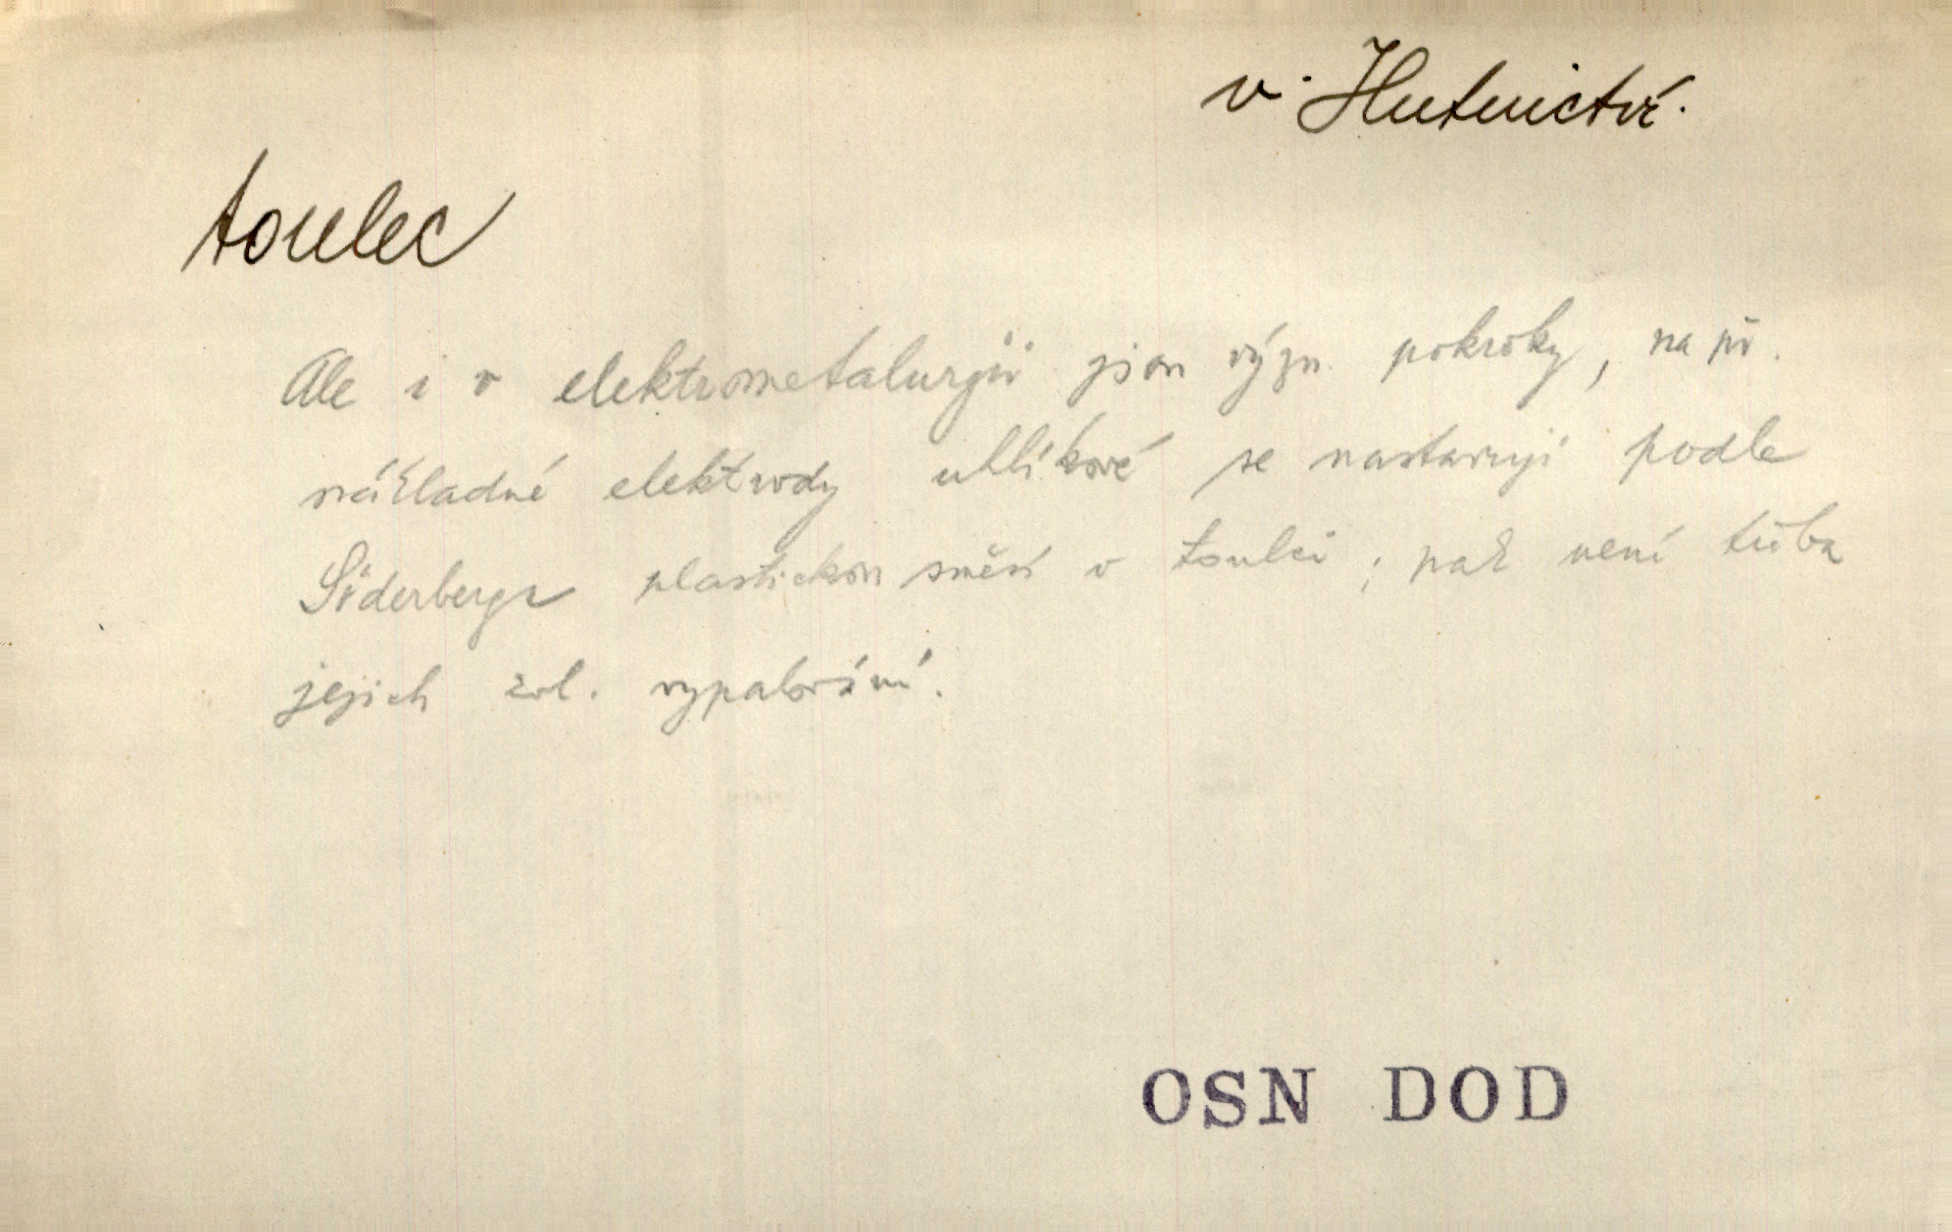 v. Hutnictví.
toulec
Ale i v elektrometalurgii jsou význ. pokroky, na př.
nákladné elektrody uhlíkové se nastavují podle
Söderberga plastickou směsí v toulci; pak není třeba
jejich zvl. vypalování.
OSN DOD